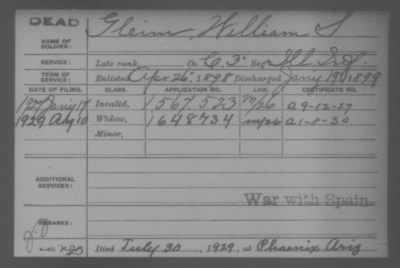 DEAD
NAME OF SOLDIER: Gleim, William S
SERVICE: Late rank, Co. C, 3" Reg't Ill. Inf.
TERM OF SERVICE: Enlisted Apr. 26, 1898 Discharged Jany 19, 1899
DATE OF FILING. CLASS. APPLICATION NO. LAW. CERTIFICATE NO.
1927 Jany 17 Invalid, 1,567,523 M/26 A 9-12-27
1929 Aug 10 Widow, 1648734 M/26 A 1-8-30
Minor,
ADDITIONAL SERVICES:
War with Spain.
REMARKS:
Died July 30, 1929, at Phoenix Ariz